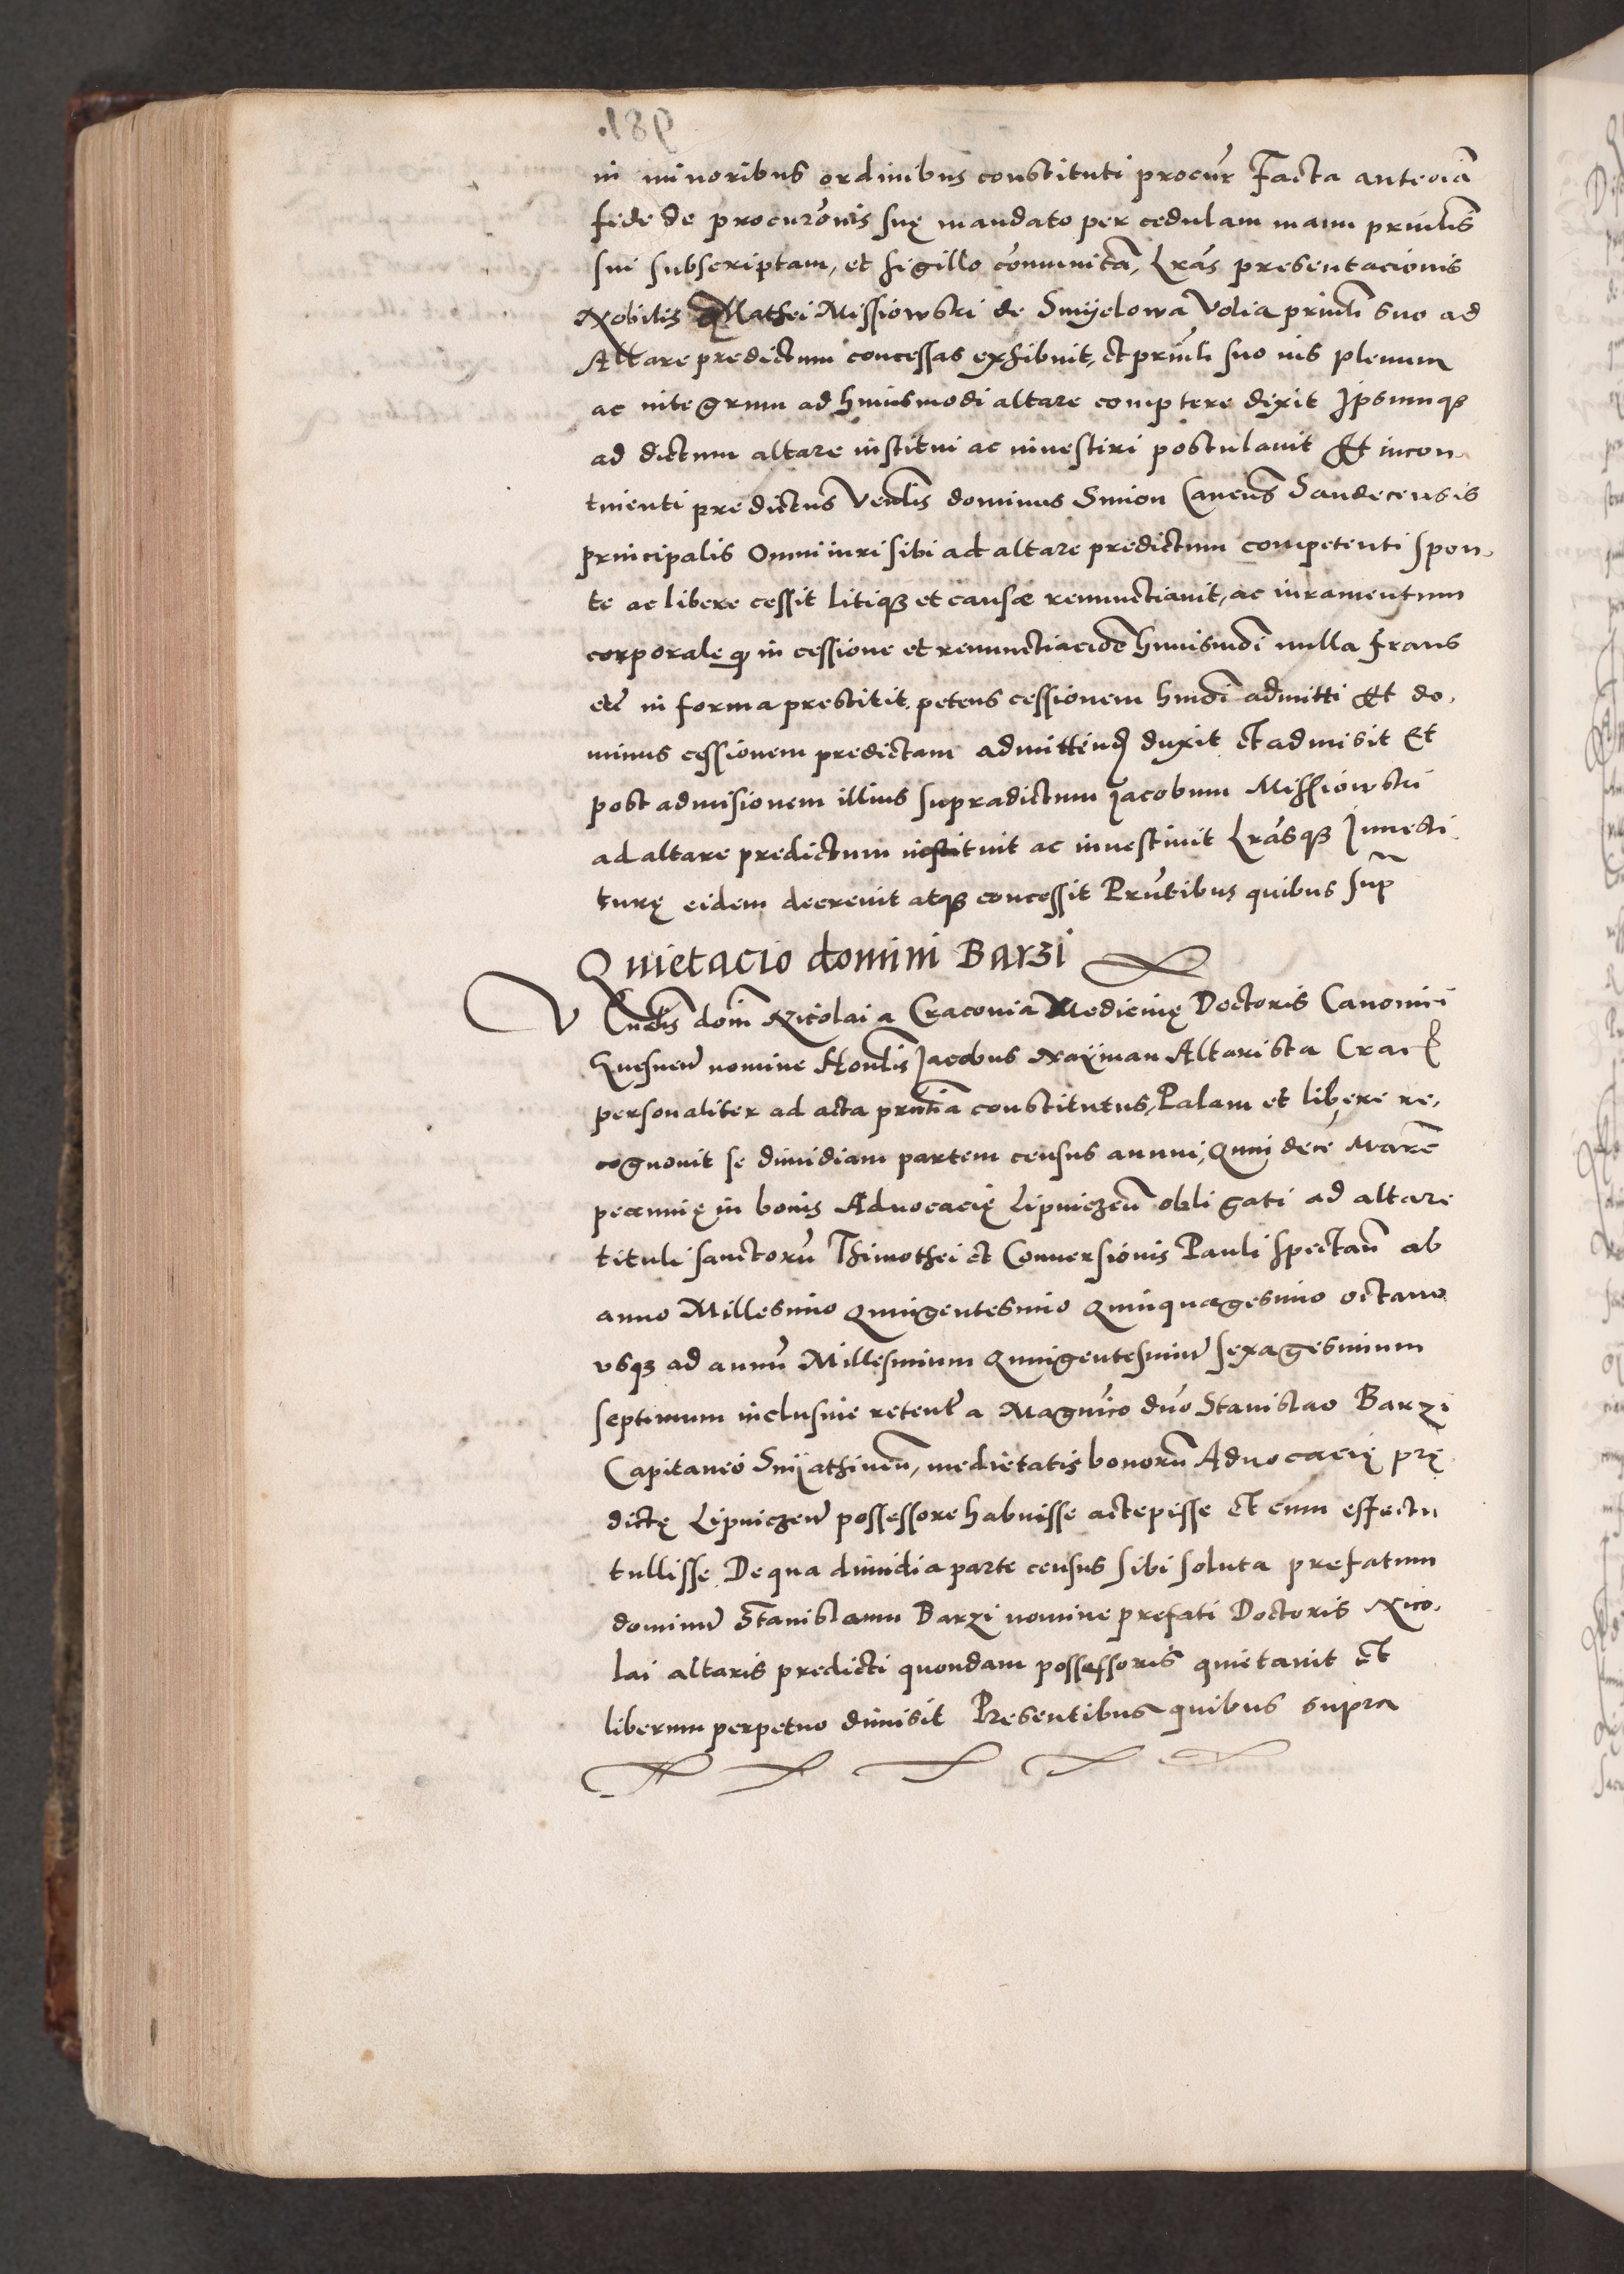 in minoribus ordinibus constituti procur̃ Facta anteoiã
fide de procurõnis suę mandato per cedulam manu prinlis̃
sui subscriptam, et sigillo com̃unitã, Lrãs presentacionis
Nobilis Mathei Missiowski de Smijelowa Volia prinlĩ suo ad
Altare predictum concessas exhibuit, et prinlĩ suo ius plenum
ac integrum ad huiusmodi altare comptere dixit Ipsumqꝫ
ad dictum altare institui ac inuestiri postulauit Et incon
tinenti predictus Venlis̃ dominus Simon Cancus̃ Sandecensis
principalis Omni iuri sibi ad altare predictum competenti spon
te ac libere cessit litiqꝫ et causæ renunctiauit, ac iuramentum
corporale ꝙ in cessione et renunctiacioẽ huiusmõi nulla fraus
etc̃ in forma prestitit, petens cessionem hmõi admitti Et do,
minus cessionem predictam admittend̃ duxit et admisit Et
post admisionem illius supradictum Jacobum Missiowski
ad altare predictum instituit ac inuestiuit Lrãsqꝫ Inuesti
turę eidem decreuit atqꝫ concessit Prñtibus quibus sup̃
Quietacio domini Barzi
Venlis̃ dom̃ Nicolai a Cracouia Medicinę Doctoris Canonici
nomine Honlis̃ Jacobus Naÿman Altarista Crac̃
personaliter ad acta prñtia constitutus, Palam et libere re,
cognouit se dimidiam partem census annui, Quindecẽ Marc̃
pecunię in bonis Aduocacię Lipniczeñ obligati ad altare
tituli sanctorũ Thimothei et Conuersionis Pauli spectañ ab
anno Millesimo Quingentesimo Quinquagesimo octauo
vsqꝫ ad annũ Millesimum Quingentesimũ sexagesimum
septimum inclusiue retent̃ a Magñico dño Stanislao Barzi
Capitaneo Snijathineñ, medietatis bonorũ Aduocacię prę
dictę Lipniczeñ possessore habuisse accepisse Et cum effectu
tullisse De qua dimidia parte census sibi soluta prefatum
dominũ Stanislaum Barzi nomine prefati Doctoris Nico,
lai altaris predicti quondam possessoris quietauit Et
liberum perpetuo dimisit Presentibus quibus supra